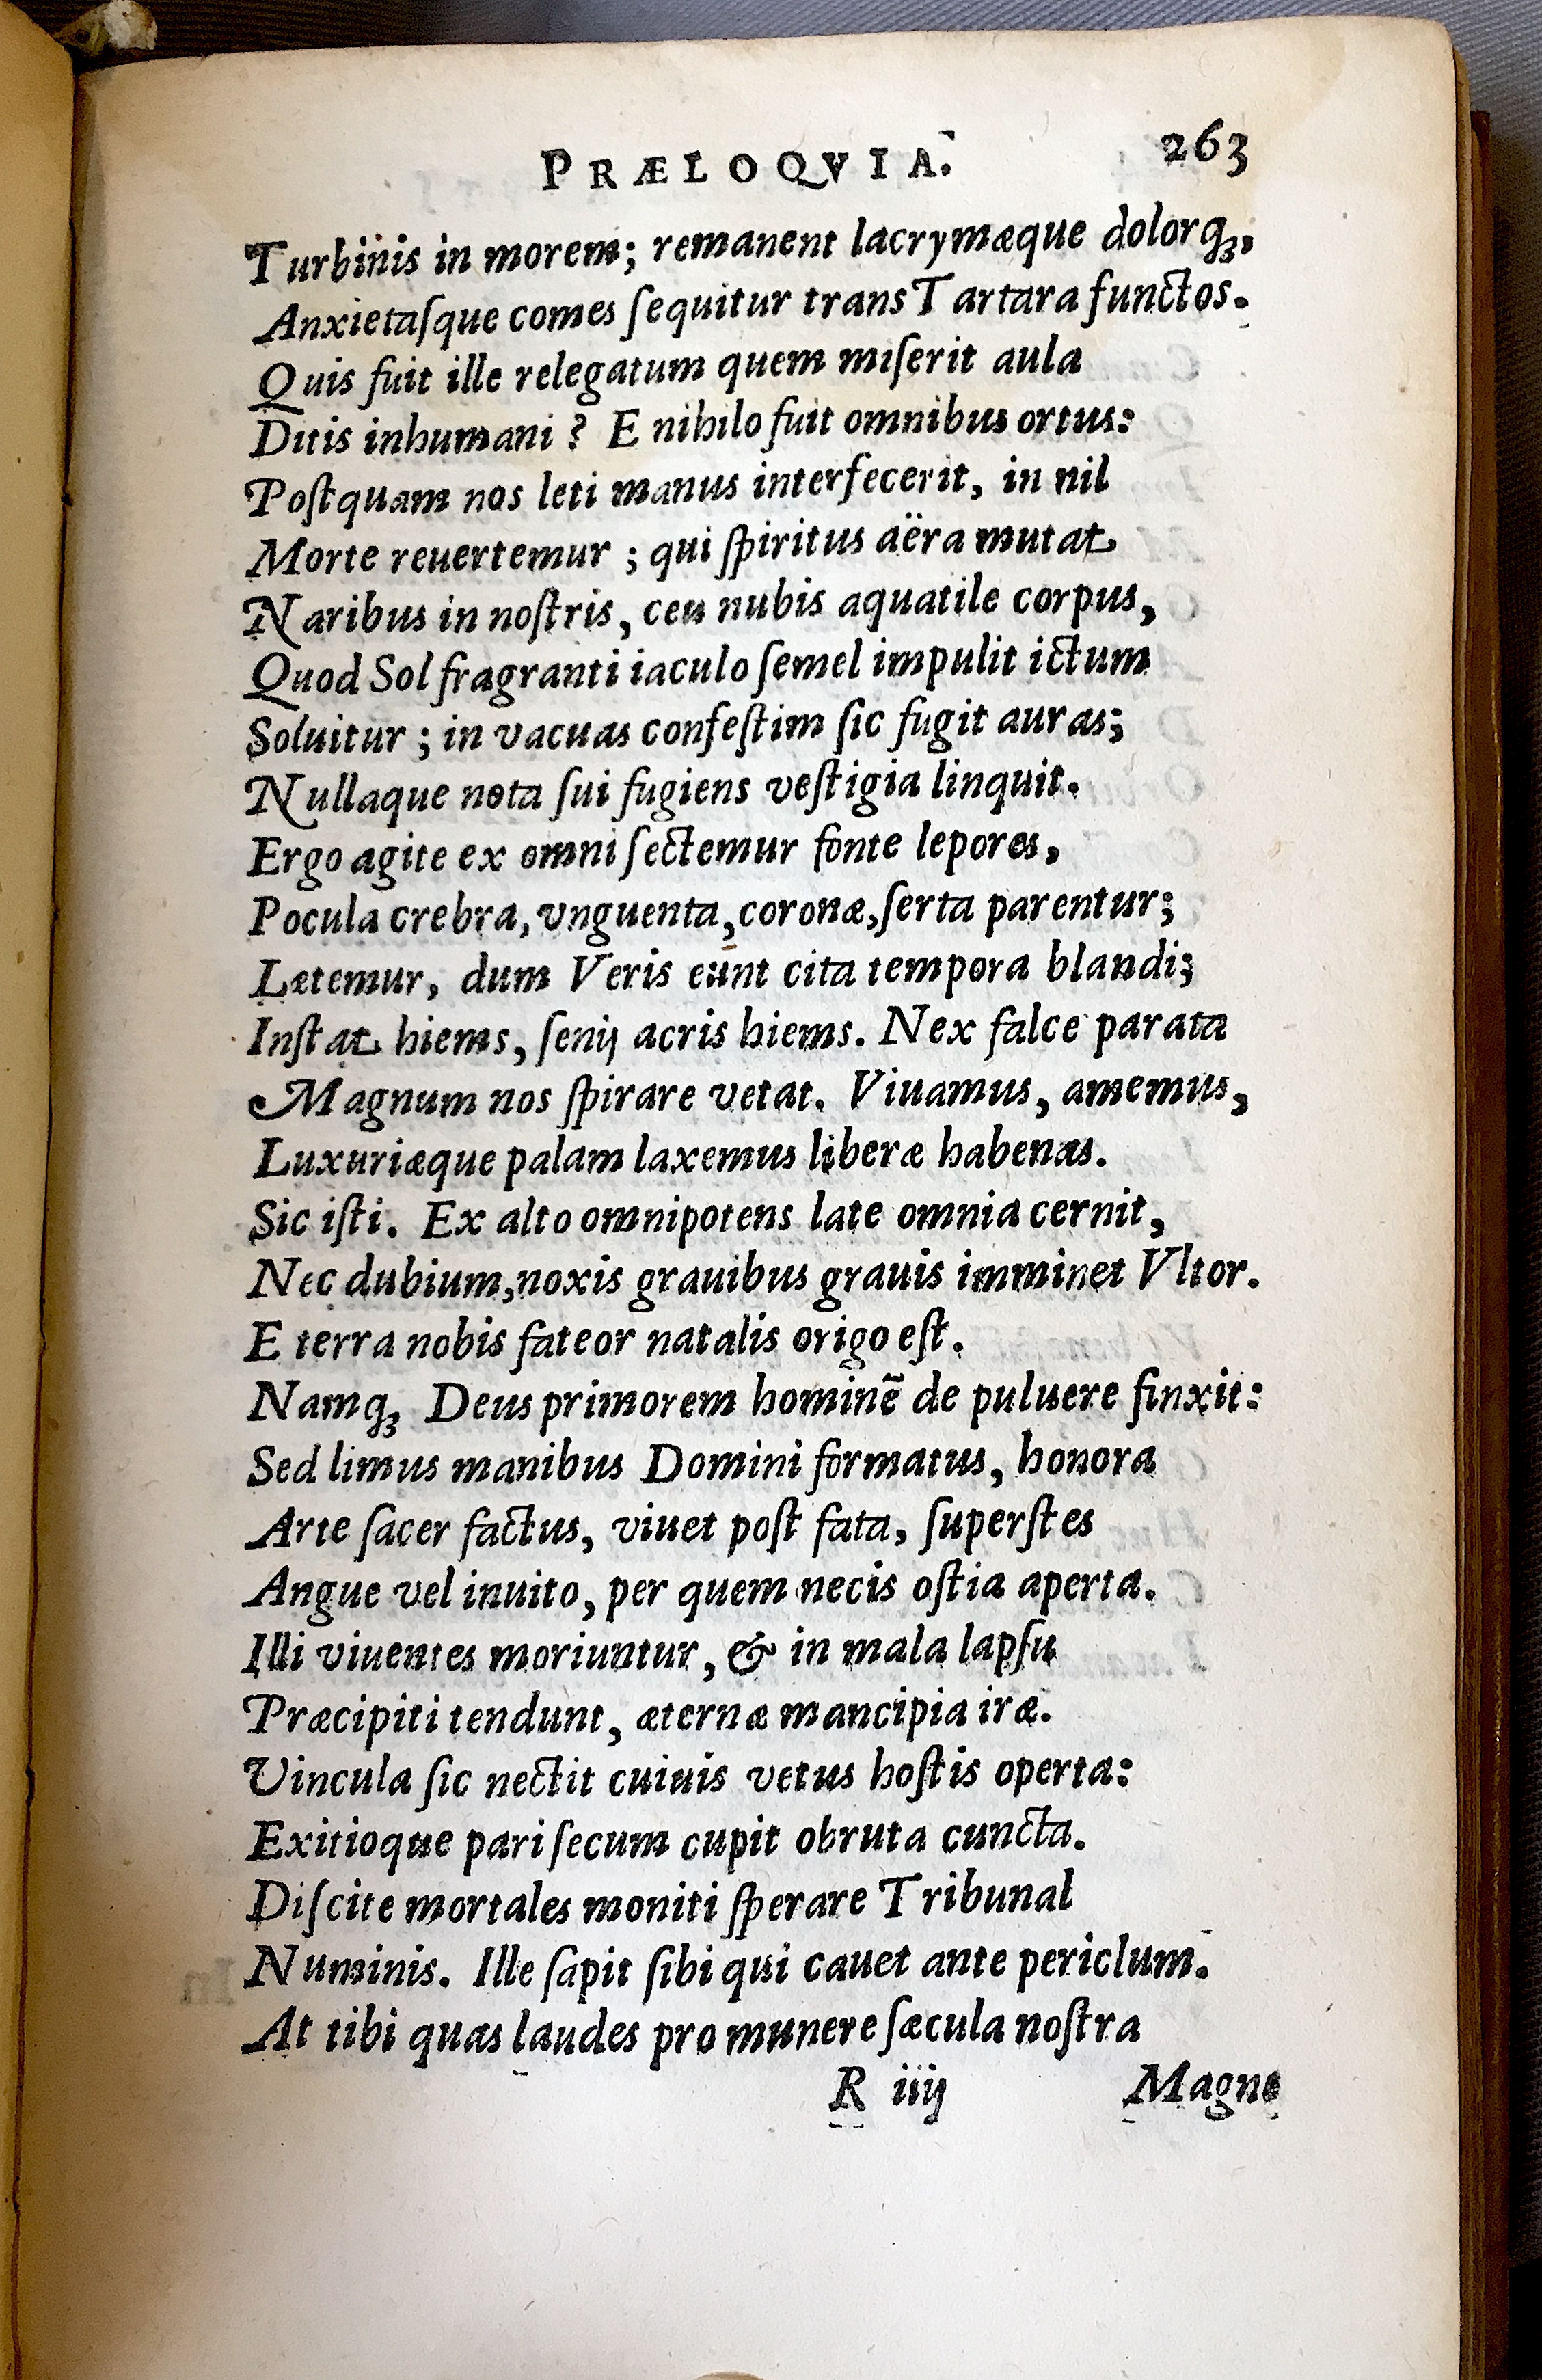 PRÆLOQVIA. 263
Turbinis in morem; remanent lacrymæque dolorq́ꝫ,
Anxietaſque comes ſequitur trans Tartara functos.
Quis fuit ille relegatum quem miſerit aula
Ditis inhumani? E nihilo fuit omnibus ortus:
Poſtquam nos leti manus interfecerit, in nil
Morte reuertemur; qui ſpiritus aëra mutat
Naribus in noſtris, ceu nubis aquatile corpus,
Quod Sol fragranti iaculo ſemel impulit ictum
Soluitur; in vacuas confeſtim ſic fugit auras;
Nullaque nota ſui fugiens veſtigia linquit.
Ergo agite ex omni ſectemur fonte lepores,
Pocula crebra, vnguenta, coronæ, ſerta parentur;
Lætemur, dum Veris eunt cita tempora blandi;
Inſtat hiems, ſenij acris hiems. Nex falce parata
Magnum nos ſpirare vetat. Viuamus, amemus,
Luxuriæque palam laxemus liberæ habenas.
Sic iſti. Ex alto omnipotens late omnia cernit,
Nec dubium, noxis grauibus grauis imminet Vltor.
E terra nobis fateor natalis origo eſt.
Namqꝫ Deus primorem hominē de puluere finxit:
Sed limus manibus Domini formatus, honora
Arte ſacer factus, viuet poſt fata, ſuperſtes
Angue vel inuito, per quem necis oſtia aperta.
Illi viuentes moriuntur, & in mala lapſu
Præcipiti tendunt, æternæ mancipia iræ.
Vincula ſic nectit cuiuis vetus hoſtis operta:
Exitioque pari ſecum cupit obruta cuncta.
Diſcite mortales moniti ſperare Tribunal
Numinis. Ille ſapit ſibi qui cauet ante periclum.
At tibi quas laudes pro munere ſæcula noſtra
R iiij Magne